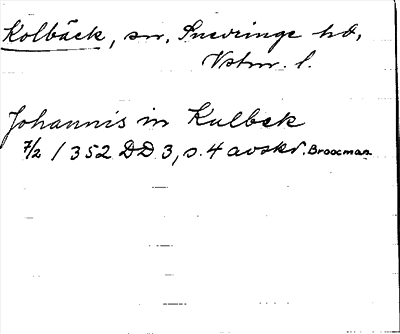 Kolbäck, sn, Snevringe hd,
Vstm. l.
Johannis in Kulbek
7/2 1352 DD 3, s. 4 avskr. Broocman